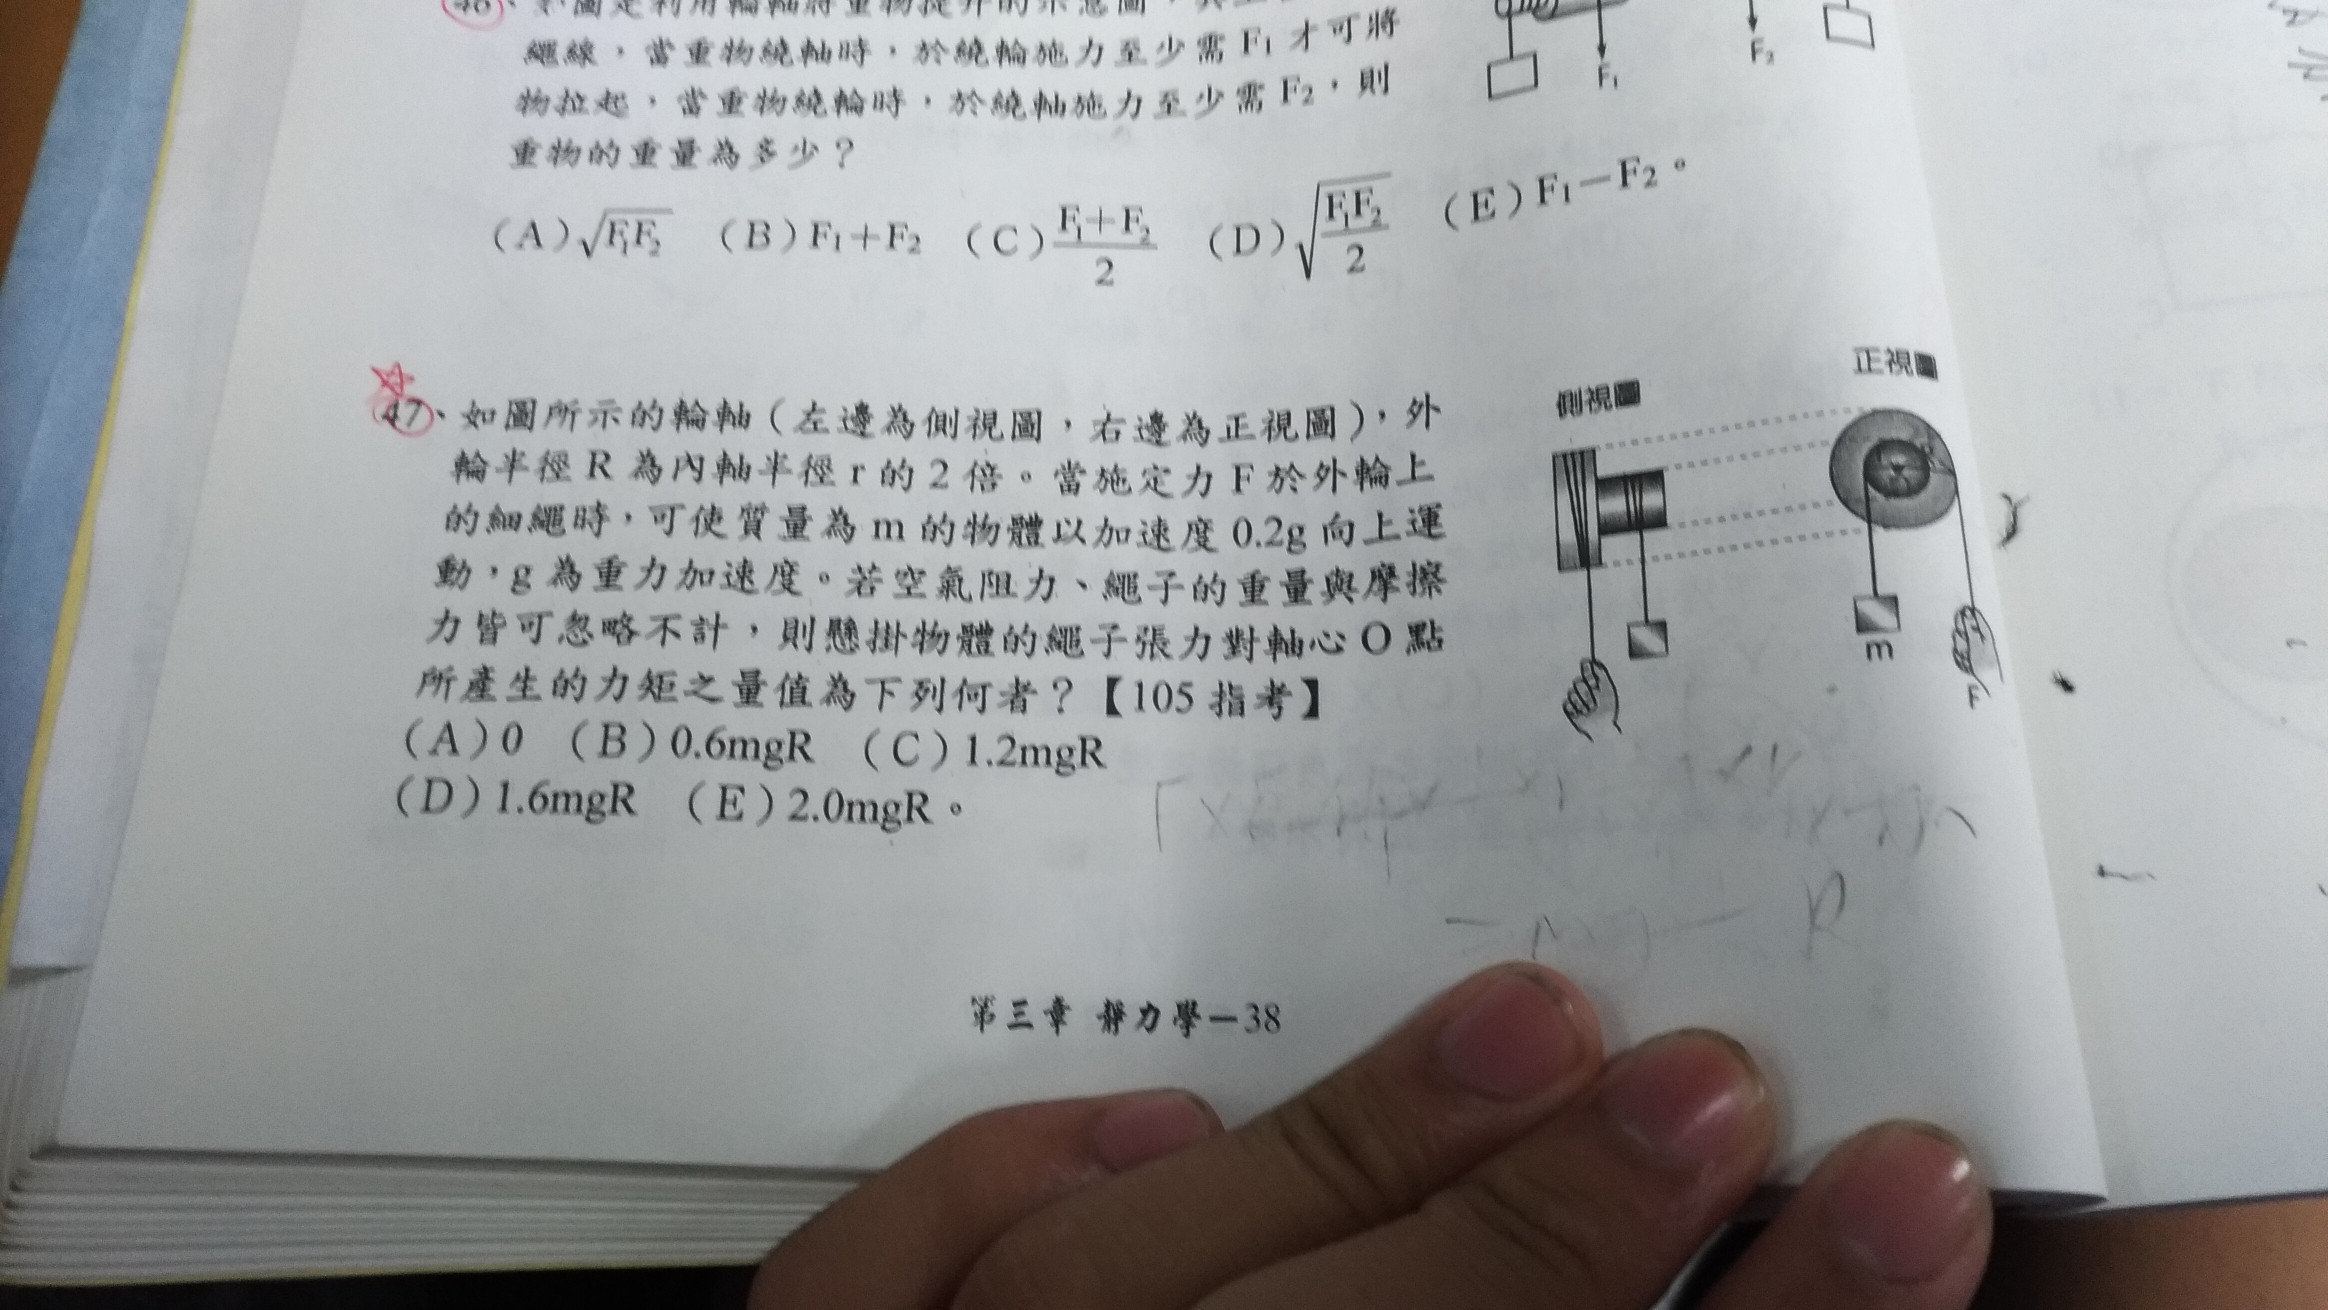 46、下圖是利用輪軸將重物提升的示意圖，
繩線，當重物繞軸時，於繞輪施力至少需 F₁ 才可將
物拉起，當重物繞輪時，於繞軸施力至少需 F₂，則
重物的重量為多少？
(A)√(F₁F₂) (B)F₁+F₂ (C)(F₁+F₂)/2 (D)√(F₁F₂/2) (E)F₁－F₂。
F₁
F₂
47、如圖所示的輪軸（左邊為側視圖，右邊為正視圖），外
輪半徑 R 為內軸半徑 r 的 2 倍。當施定力 F 於外輪上
的細繩時，可使質量為 m 的物體以加速度 0.2g 向上運
動，g 為重力加速度。若空氣阻力、繩子的重量與摩擦
力皆可忽略不計，則懸掛物體的繩子張力對軸心 O 點
所產生的力矩之量值為下列何者？【105 指考】
(A)0 (B)0.6mgR (C)1.2mgR
(D)1.6mgR (E)2.0mgR。
側視圖
正視圖
m
F
第三章 靜力學－38